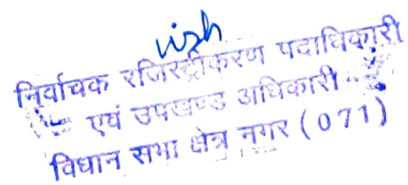 निर्वाचक रजिस्ट्रीकरण पदाधिकारी
एवं उपखण्ड अधिकारी
विधान सभा क्षेत्र नगर (071)